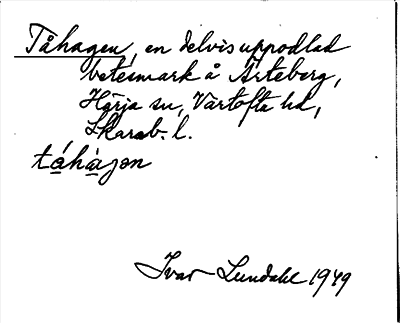 Tåhagen, en delvis uppodlad
betesmark å Årteberg,
Härja sn, Vartofta hd,
Skarab. l.
tåhàgen
Ivar Lundahl 1949